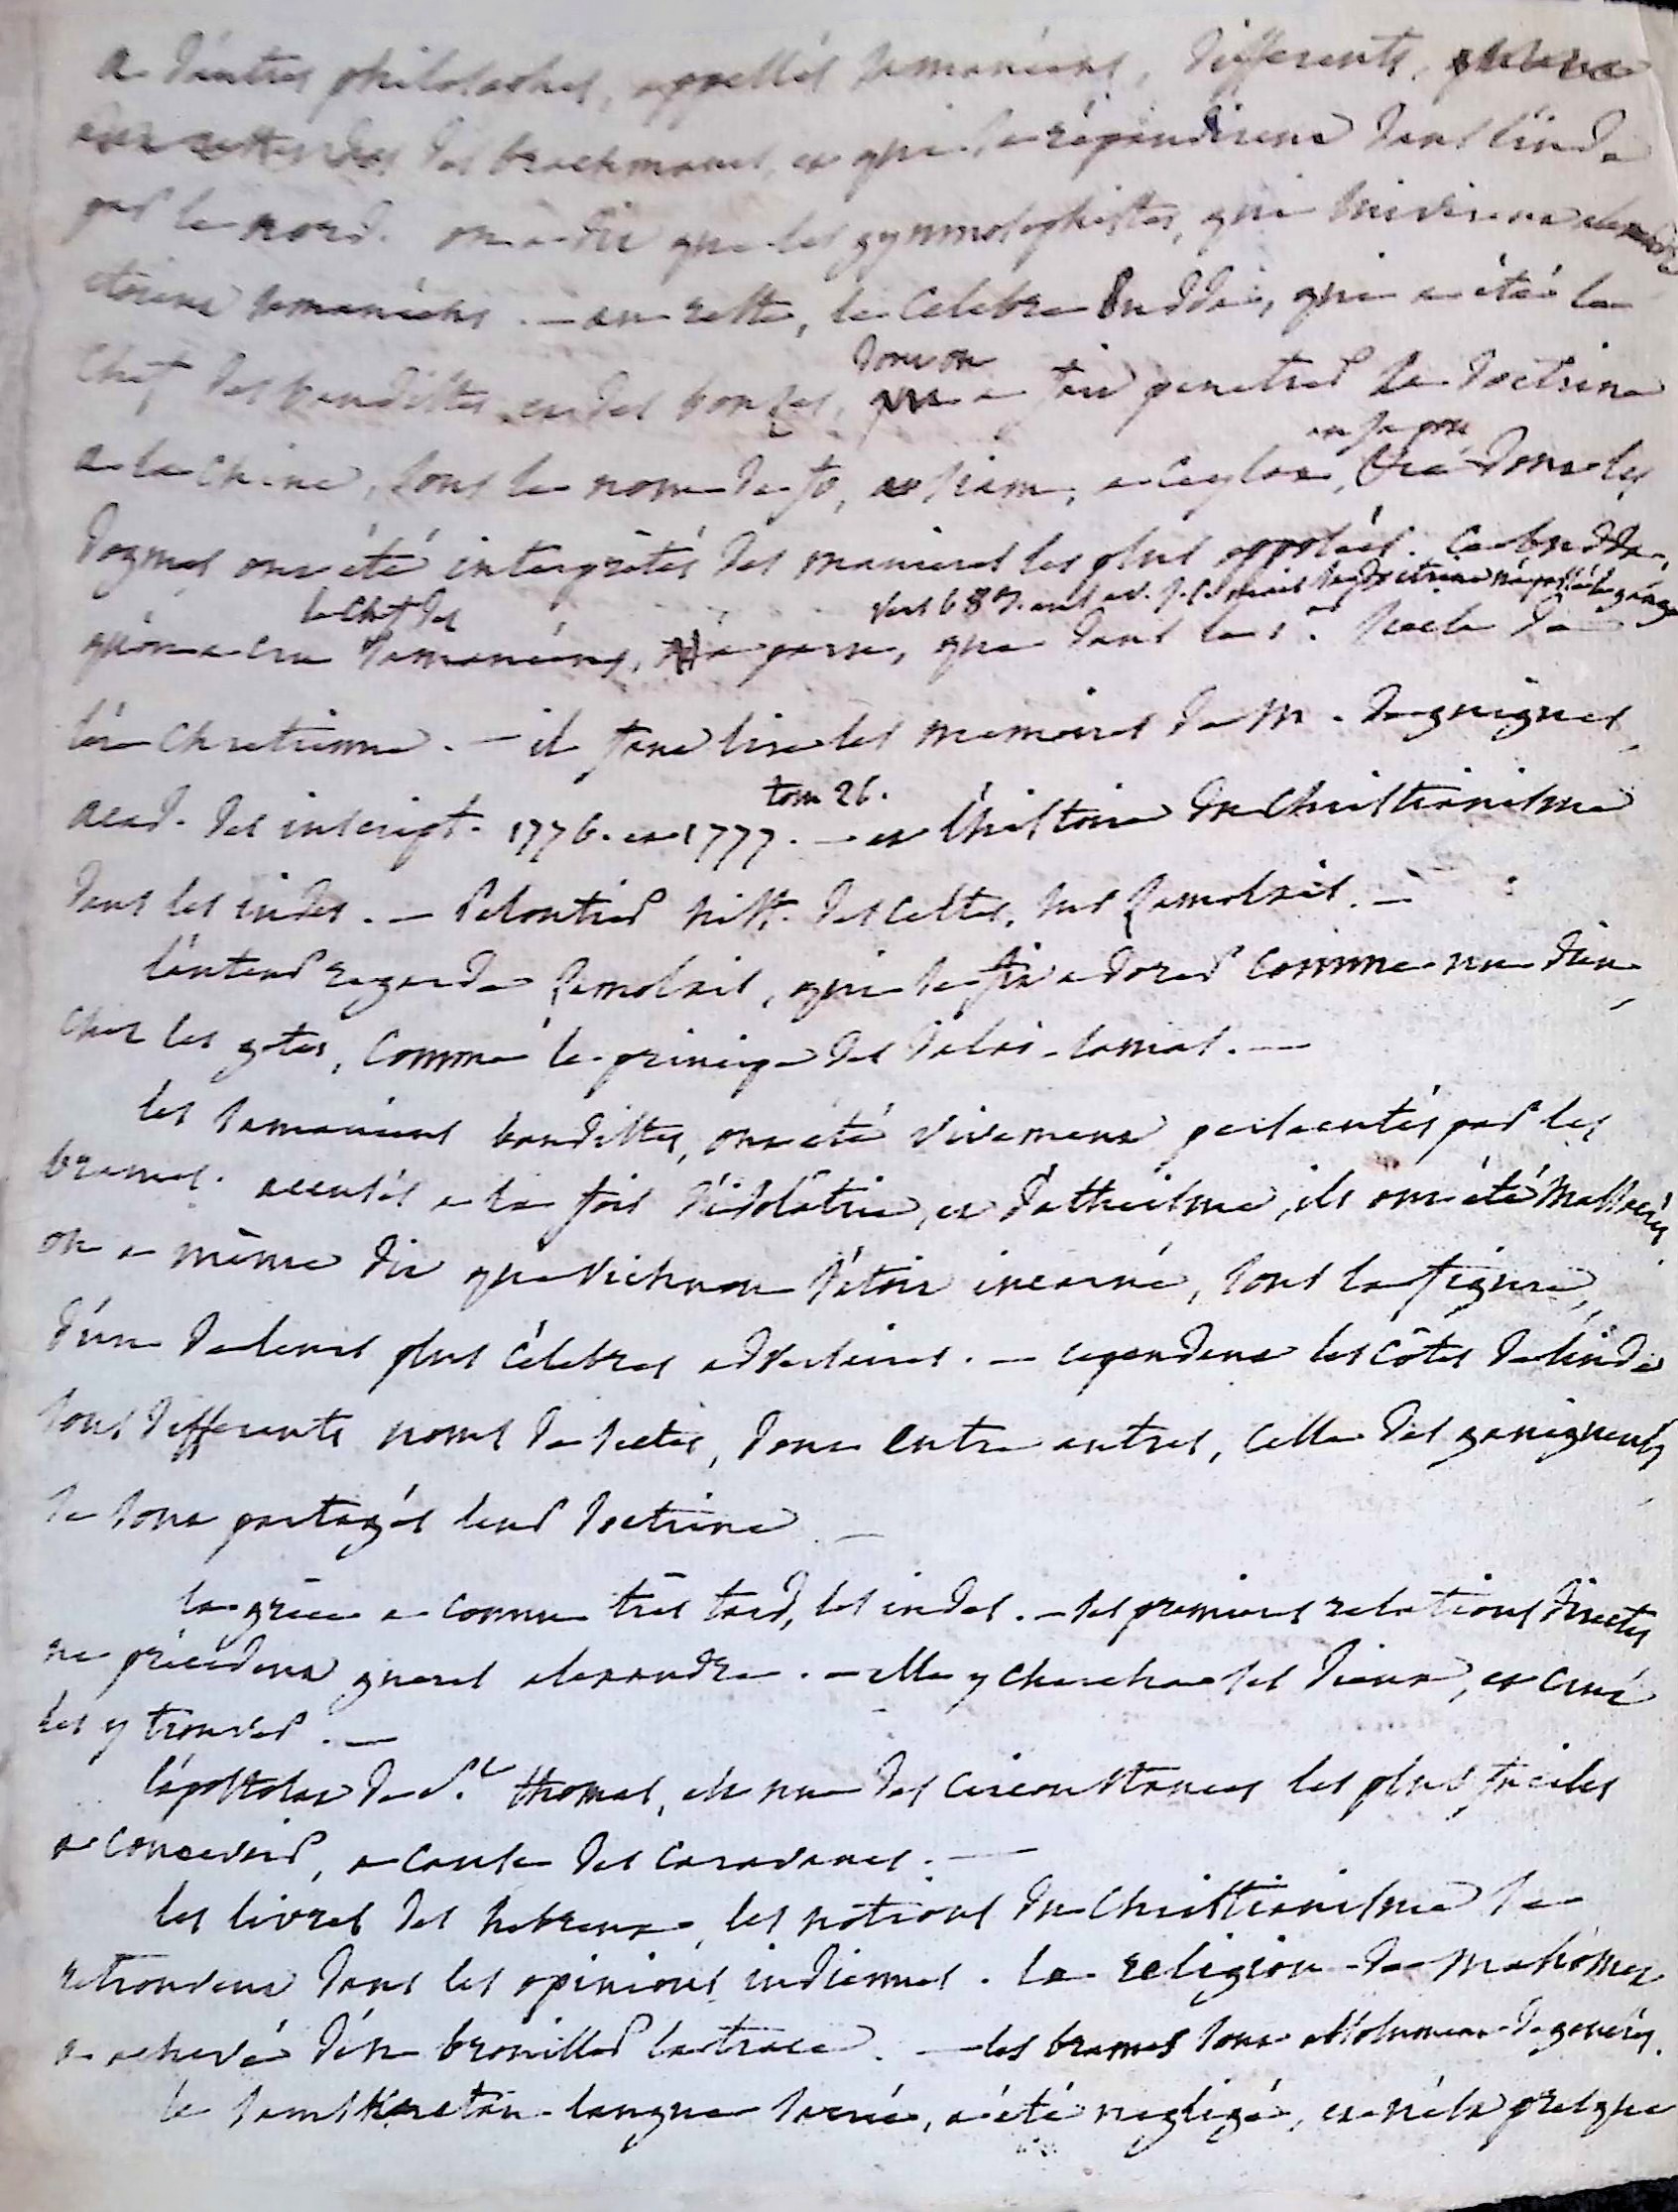 a d'autres philosophes, appellés samanéens, differents,
des brachmanes, et qui se répandirent dans l'inde
par le nord. on a dit que les gymnosophistes, qui suivirent
étoient samanéens. — au reste, le celebre Budda, qui a été le
chef des bandistes et des bonzes, dont on a fait penetrer la doctrine
a la chine, sous le nom de fo, a siam, a ceylan, au japon, et dont les
dogmes ont été interprêtés des manieres les plus opposées. ce budda,
vers 689. ans av. j. c. mais sa doctrine n'a passé le gange
qu'on a cru le chef des samanéens, n'a paru, que dans le 1er siecle de
l'ere chretienne. — il faut lire les memoires de M. Deguignes,
acad. des inscript. 1776. et 1777. tom 26. — et l'histoire du Christianisme
dans les indes. — Peloutier hist. des celtes, sur Zamolxis. —
l'auteur regarde Zamolxis, qui se fit adorer comme un dieu,
chez les getes, comme le principe des dalai-lamas. —
les samanéens bandistes, ont été vivement persecutés par les
brames. accusés a la fois d'idolâtrie, et d'atheisme, ils ont été massacrés
on a même dit que vichnou s'étoit incarné, sous la figure,
d'un de leurs plus célebres adversaires. — cependant les côtes de l'inde
sous differents noms de sectes, dont entre autres, celle des
se sont partagés leur doctrine. —
la grèce a connu très tard, les indes. — ses premieres relations directes
ne précédent gueres alexandre. — elle y chercha ses dieux, et crut
les y trouver. —
l'apostolat de St. thomas, est une des circonstances les plus faciles
a concevoir, a cause des caravanes. —
les livres des hebreux, les notions du christianisme se
retrouvent dans les opinions indiennes. la religion de mahomet
a achevé d'en brouiller la trace. — les brames sont absolument degenerés.
le samskretan langue sacrée, a été negligé, et n'est presque